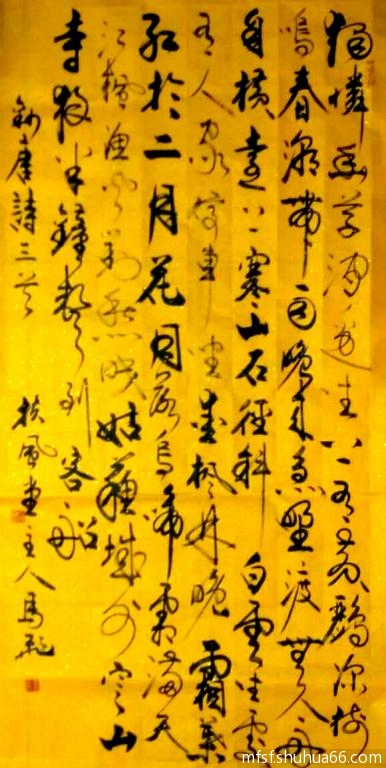 獨憐幽草澗邊生上有黃鸝深樹
鳴春潮帶雨晚來急野渡無人舟
自橫遠上寒山石徑斜白雲生處
有人家停車坐愛楓林晚霜葉
紅於二月花月落烏啼霜滿天
江楓漁火對愁眠姑蘇城外寒山
寺夜半鐘聲到客船
錄唐詩三首
扶風堂主人馬
mfsfshuhua66.com